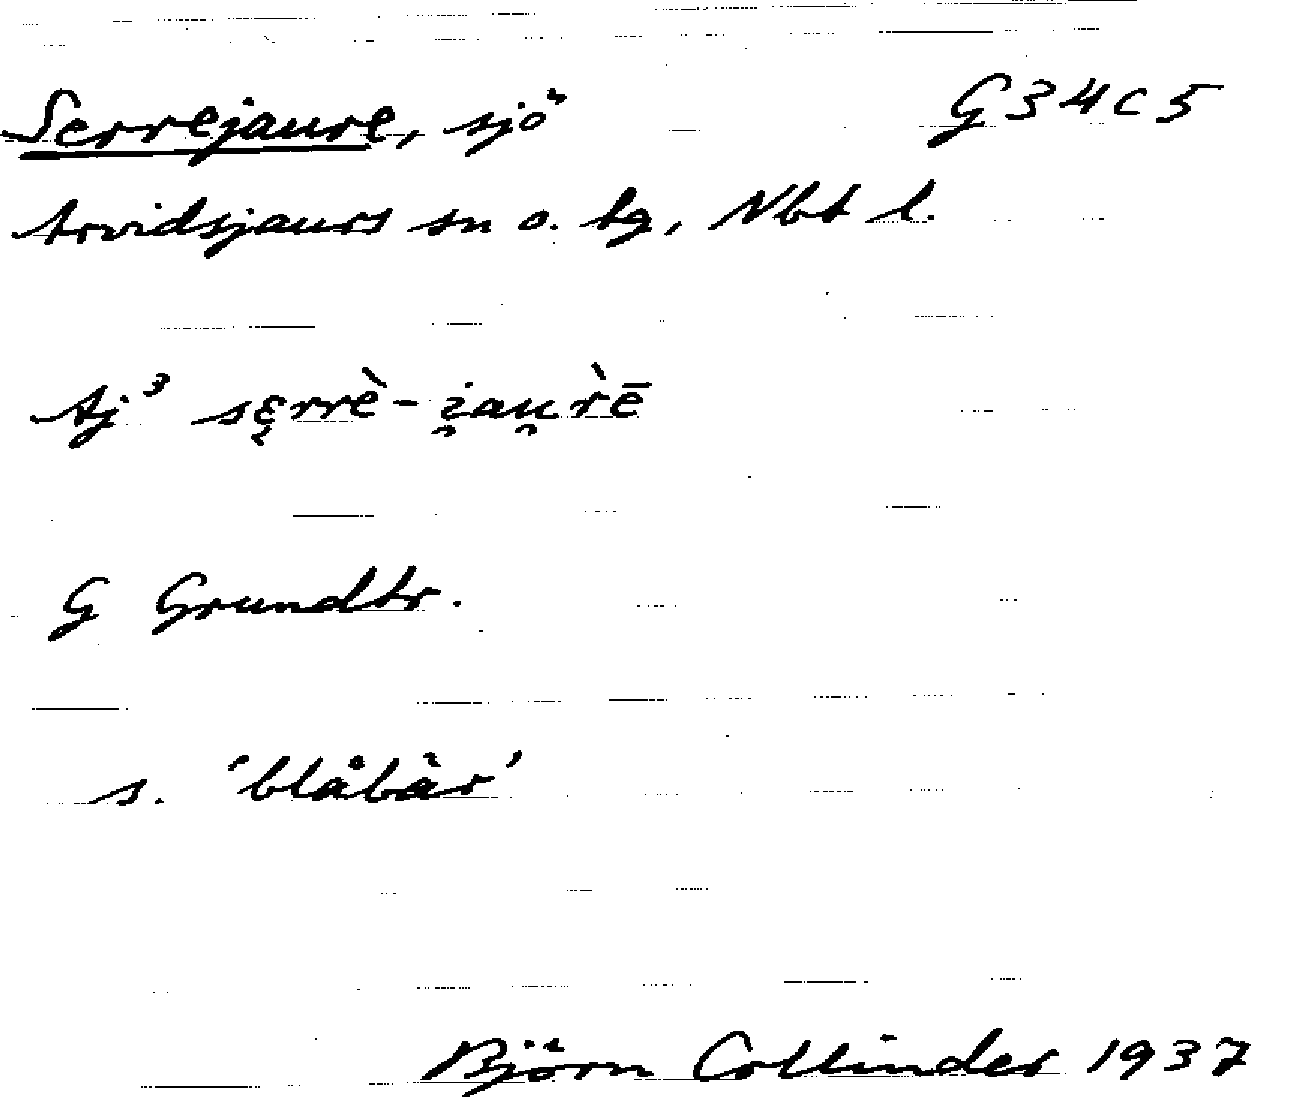 Serrejaure, sjö G34C5
Arvidsjaurs sn o. tg, Nbt l.
Aj³ sę̀rrè-i̯au̯r̀ē
G Grundtr.
s. 'blåbär'
Björn Collinder 1937